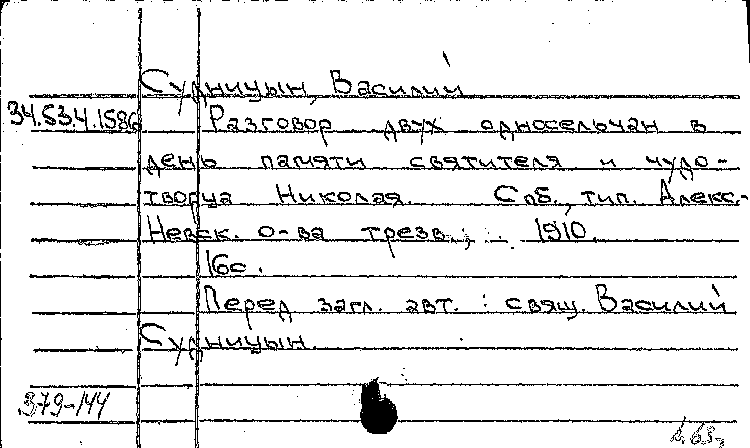 Судницын, Василий
34.53.4.1586 Разговор двух односельчан в
день памяти святителя и чудо-
творца Николая. Спб., тип. Алекс.-
Невск. о-ва трезв., 1910.
16с.
Перед загл. авт.: свящ. Василий
Судницын.
379-144